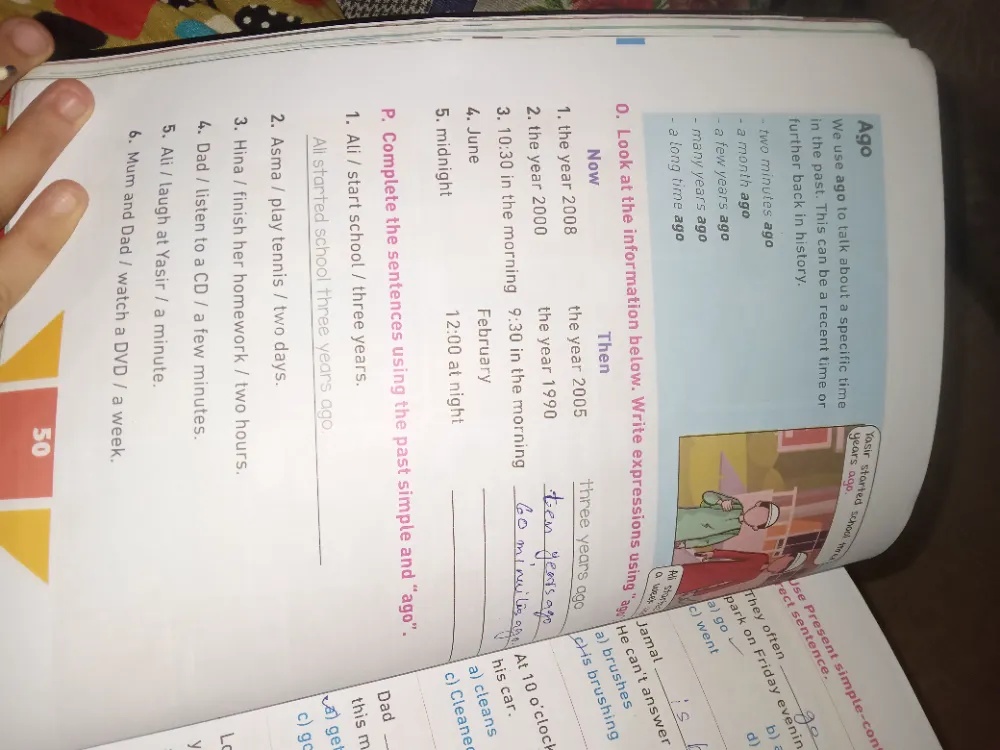 Ago
We use ago to talk about a specific time
in the past. This can be a recent time or
further back in history.
- two minutes ago
- a month ago
- a few years ago
- many years ago
- a long time ago
Yasir started school
years ago.
Ali
a week
O. Look at the information below. Write expressions using "ago
Now Then
1. the year 2008 the year 2005 three years ago
2. the year 2000 the year 1990 ten years ago
3. 10:30 in the morning 9:30 in the morning 60 ago
4. June February
5. midnight 12:00 at night
P. Complete the sentences using the past simple and "ago".
1. Ali / start school / three years.
Ali started school three years ago.
2. Asma / play tennis / two days.
3. Hina / finish her homework / two hours.
4. Dad / listen to a CD / a few minutes.
5. Ali / laugh at Yasir / a minute.
6. Mum and Dad / watch a DVD / a week.
50
Use Present simple-con
rect sentence.
They often go
park on Friday evenin
a) go b)
c) went d)
Jamal is
He can't answer
a) brushes
c) is brushing
At 10 o'clock
his car.
a) cleans
c) Cleane
Dad
this m
a) get
c) go